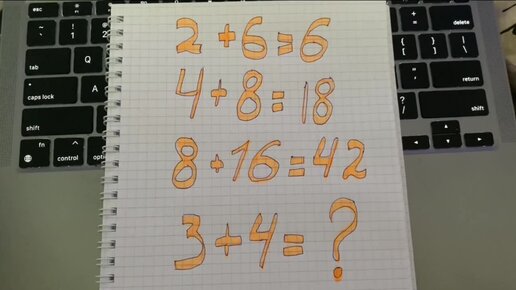 2+6=6
4+8=18
8+16=42
3+4=?
esc
tab
Q
caps lock
A
shift
fn
control
option
delete
shift